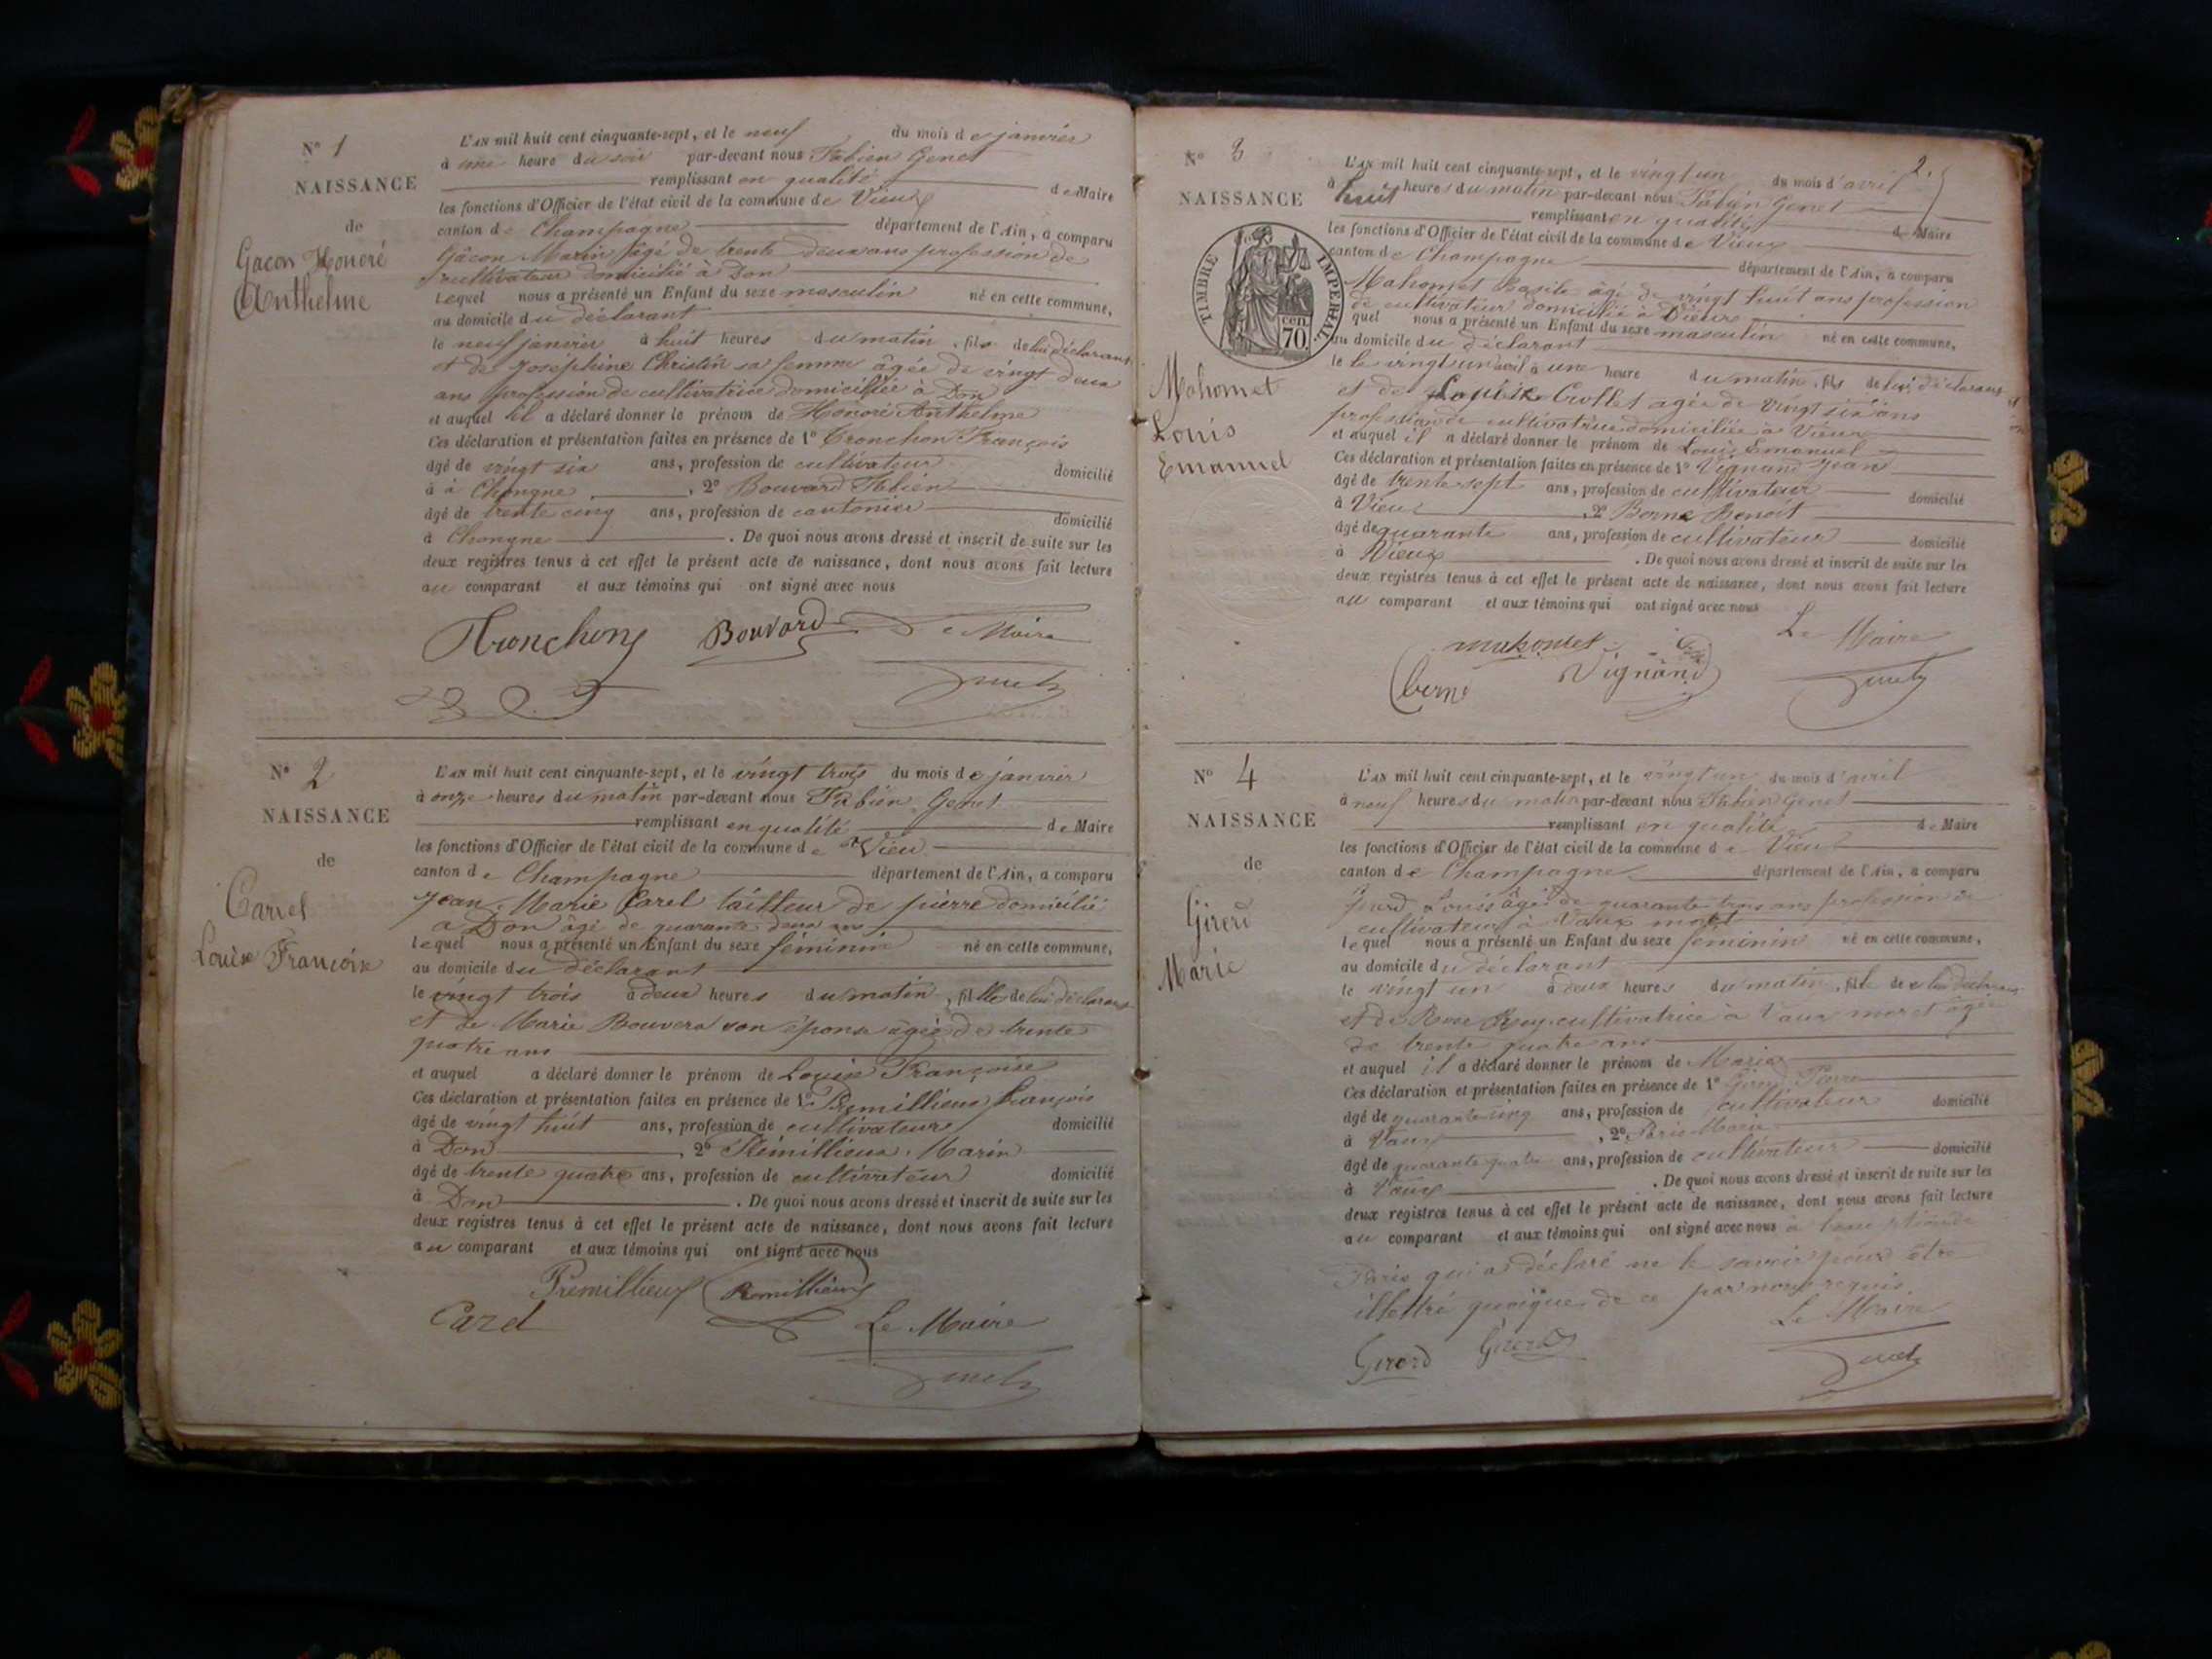 N° 1
NAISSANCE
de
Gacon Honoré
Anthelme
L'AN mil huit cent cinquante-sept, et le neuf du mois de janvier
à une heure du soir par-devant nous Fabien Genet
remplissant en qualité de Maire
les fonctions d'Officier de l'état civil de la commune de Vieu
canton de Champagne département de l'Ain, a comparu
Gâcon Marin âgé de trente deux ans profession de
cultivateur domicilié à Don
Lequel nous a présenté un Enfant du sexe masculin né en cette commune,
au domicile du déclarant
le neuf janvier à huit heures du matin, fils de lui déclarant
et de Joséphine Christin sa femme âgée de vingt deux
ans profession de cultivatrice domiciliée à Don
et auquel il a déclaré donner le prénom de Honoré Anthelme
Ces déclaration et présentation faites en présence de 1° Tronchon François
âgé de vingt six ans, profession de cultivateur domicilié
à à Chongne, 2° Bouvard Fabien
âgé de trente cinq ans, profession de cantonier domicilié
à Chongne. De quoi nous avons dressé et inscrit de suite sur les
deux registres tenus à cet effet le présent acte de naissance, dont nous avons fait lecture
au comparant et aux témoins qui ont signé avec nous
Tronchon Bouvard Le Maire
Genet
N° 2
NAISSANCE
de
Carrel
Louise Françoise
L'AN mil huit cent cinquante-sept, et le vingt trois du mois de janvier
à onze heures du matin par-devant nous Fabien Genet
remplissant en qualité de Maire
les fonctions d'Officier de l'état civil de la commune de Vieu
canton de Champagne département de l'Ain, a comparu
Jean Marie Carel tailleur de pierre domicilié
a Don âgé de quarante deux ans
Lequel nous a présenté un Enfant du sexe féminin né en cette commune,
au domicile du déclarant
le vingt trois à deux heures du matin, fille de lui déclarant
et de Marie Bouvera son épouse âgée de trente
quatre ans
et auquel a déclaré donner le prénom de Louise Françoise
Ces déclaration et présentation faites en présence de 1° Premillieux François
âgé de vingt huit ans, profession de cultivateur domicilié
à Don, 2° Prémillieux Marin
âgé de trente quatre ans, profession de cultivateur domicilié
à Don. De quoi nous avons dressé et inscrit de suite sur les
deux registres tenus à cet effet le présent acte de naissance, dont nous avons fait lecture
au comparant et aux témoins qui ont signé avec nous
Premillieux Premillieux
Carel Le Maire
Genet
2.
N° 3
NAISSANCE
TIMBRE IMPERIAL
70 cen
Mahomet
Louis
Emanuel
L'AN mil huit cent cinquante-sept, et le vingt un du mois d'avril
à huit heures du matin par-devant nous Fabien Genet
remplissant en qualité de Maire
les fonctions d'Officier de l'état civil de la commune de Vieux
canton de Champagne département de l'Ain, a comparu
Mahomet Basile âgé de vingt huit ans profession
de cultivateur domicilié à Vieux
quel nous a présenté un Enfant du sexe masculin né en cette commune,
au domicile du déclarant
le le vingt un avril à une heure du matin, fils de lui déclarant
et de Louise Crollet agée de vingt six ans
profession de cultivatrice domiciliée à Vieux
et auquel il a déclaré donner le prénom de Louis Emanuel
Ces déclaration et présentation faites en présence de 1° Vignand Jean
âgé de trente sept ans, profession de cultivateur domicilié
à Vieux, 2° Berne Benoit
âgé de quarante ans, profession de cultivateur domicilié
à Vieux. De quoi nous avons dressé et inscrit de suite sur les
deux registres tenus à cet effet le présent acte de naissance, dont nous avons fait lecture
au comparant et aux témoins qui ont signé avec nous
Le Maire
mahomet Vignand
Berne Genet
N° 4
NAISSANCE
de
Girerd
Marie
L'AN mil huit cent cinquante-sept, et le vingt un du mois d'avril
à neuf heures du matin par-devant nous Fabien Genet
remplissant en qualité de Maire
les fonctions d'Officier de l'état civil de la commune de Vieux
canton de Champagne département de l'Ain, a comparu
Girerd Louis âgé de quarante trois ans profession de
cultivateur à Vaux moret
lequel nous a présenté un Enfant du sexe féminin né en cette commune,
au domicile du déclarant
le vingt un à deux heures du matin, fille de lui déclarant
et de Rose Roy cultivatrice à Vaux moret âgée
de trente quatre ans
et auquel il a déclaré donner le prénom de Marie
Ces déclaration et présentation faites en présence de 1° Girerd Pierre
âgé de quarante cinq ans, profession de cultivateur domicilié
à Vaux, 2° Paris Marin
âgé de quarante quatre ans, profession de cultivateur domicilié
à Vaux. De quoi nous avons dressé et inscrit de suite sur les
deux registres tenus à cet effet le présent acte de naissance, dont nous avons fait lecture
au comparant et aux témoins qui ont signé avec nous à
Paris qui a déclaré ne le savoir pour être
illettré quoique de ce par nous requis
Le Maire
Girerd Girerd
Genet